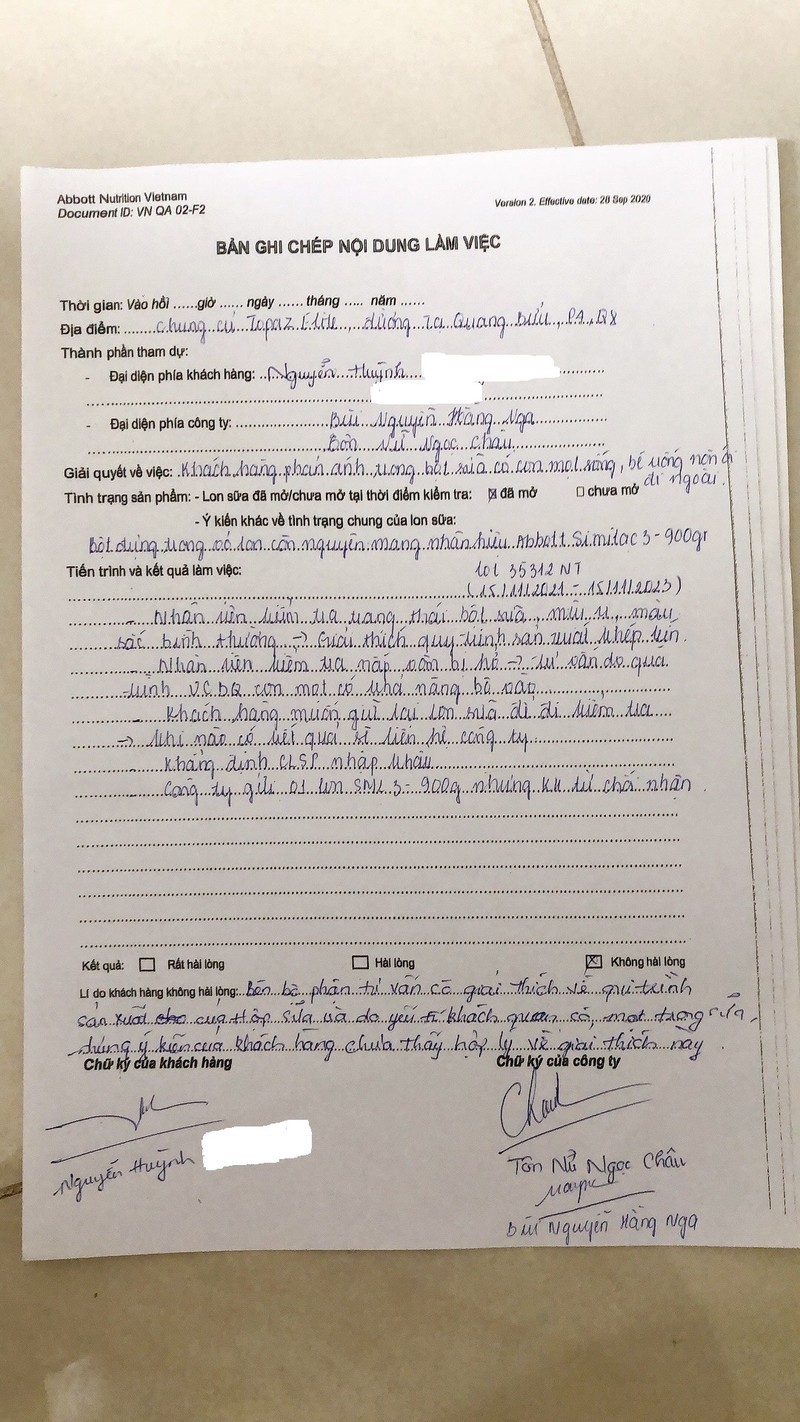 Abbott Nutrition Vietnam
Document ID: VN QA 02-F2
Version 2. Effective date: 28 Sep 2020
BẢN GHI CHÉP NỘI DUNG LÀM VIỆC
Thời gian: Vào hồi ......giờ ...... ngày ...... tháng ..... năm ......
Địa điểm: Chung cư Topaz Elite, đường Tạ Quang Bửu, P4, Q8
Thành phần tham dự:
- Đại diện phía khách hàng: Nguyễn Huỳnh
- Đại diện phía công ty: Bùi Nguyễn Hằng Nga
Tôn Nữ Ngọc Châu
Giải quyết về việc: Khách hàng phản ánh trong bột sữa có con mọt sống, bé uống nôn ói
đi ngoài.
Tình trạng sản phẩm: - Lon sữa đã mở/chưa mở tại thời điểm kiểm tra: ☒ đã mở ☐ chưa mở
- Ý kiến khác về tình trạng chung của lon sữa:
Bột đựng trong vỏ lon còn nguyên mang nhãn hiệu Abbott Similac 3 - 900gr
Tiến trình và kết quả làm việc: lot 35312 NT
(15/11/2021 - 15/11/2023)
- Nhân viên kiểm tra trạng thái bột sữa, mùi vị, màu
sắc bình thường → Giải thích quy trình sản xuất khép kín.
- Nhân viên kiểm tra nắp bị hở → tư vấn do quá
trình VC BQ con mọt có khả năng bò vào
- Khách hàng muốn giữ lại lon sữa để đi kiểm tra
→ Khi nào có kết quả sẽ liên hệ công ty.
- Khẳng định CLSP nhập khẩu
- Công ty gửi 01 lon SML 3 - 900g nhưng KH từ chối nhận.
Kết quả: ☐ Rất hài lòng ☐ Hài lòng ☒ Không hài lòng
Lí do khách hàng không hài lòng: Bên bộ phận tư vấn có giải thích về qui trình
sản xuất của hộp sữa và do yếu tố khách quan có mọt trong sữa,
nhưng ý kiến của khách hàng chưa thấy hợp lý về giải thích này.
Chữ ký của khách hàng Chữ ký của công ty
Nguyễn Huỳnh
Tôn Nữ Ngọc Châu
Bùi Nguyễn Hằng Nga